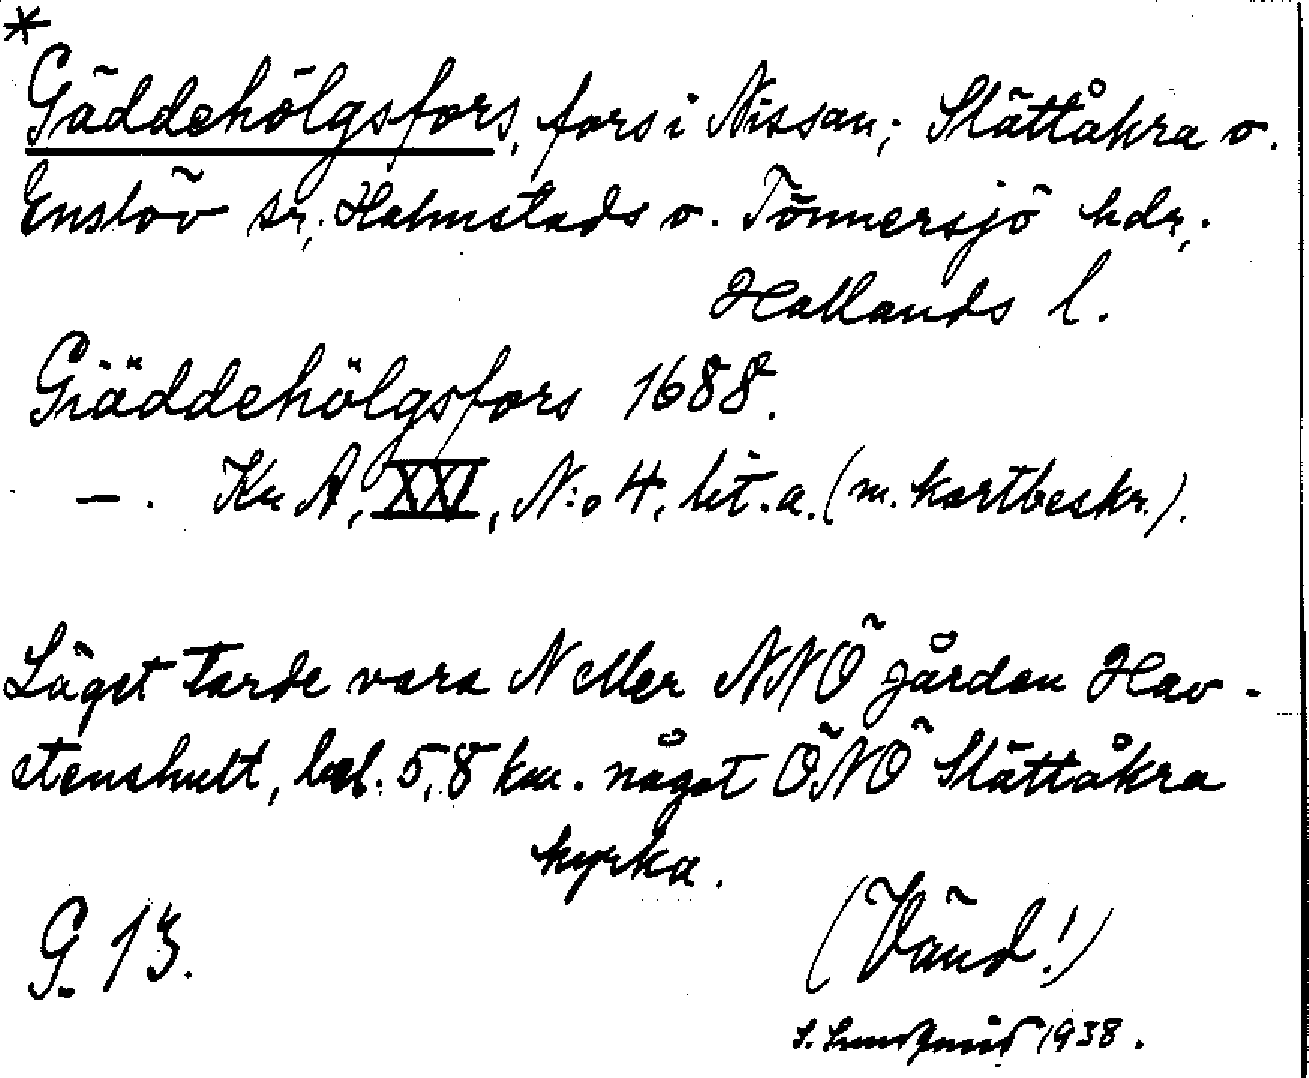 *
Gäddehölgsfors, fors i Nissan; Slättåkra o.
Enslöv sr, Halmstads o. Tönnersjö hdr,
Hallands l.
Giäddehölgsfors 1688.
—. Kr A, XXI, N:o 4, lit. a. (m. kartbeskr.).
Läget torde vara N eller NNÖ gården Hav-
stenshult, bel. 5,8 km. något ÖNÖ Slättåkra
kyrka.
G. 13.
(Vänd!)
S. Lundqvist 1938.